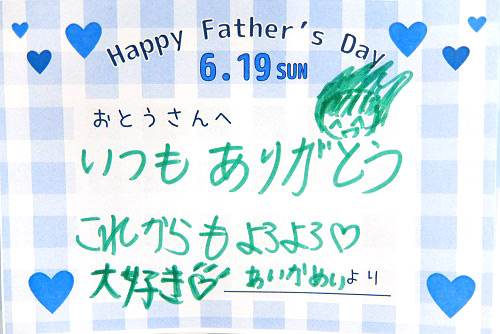 Happy Father's Day
6.19 SUN
おとうさんへ
いつもありがとう
これからもよろよろ♡
大好き♡
あいかめいより